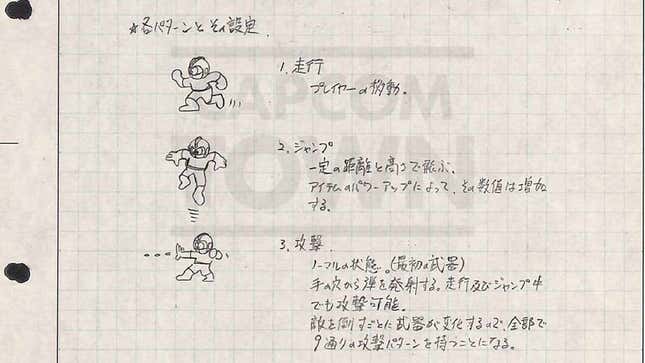 ☆各パターンとその設定.
1. 走行
プレイヤーの移動。
2. ジャンプ
一定の距離と高さで飛ぶ。
アイテムのパワーアップによって、その数値は増加
する。
3. 攻撃.
ノーマルの状態。(最初の武器)
手の穴から弾を発射する。走行及びジャンプ中
でも攻撃可能。
敵を倒すごとに武器が変化するので、全部で
9通りの攻撃パターンを持つことになる。
CAPCOM
TOWN